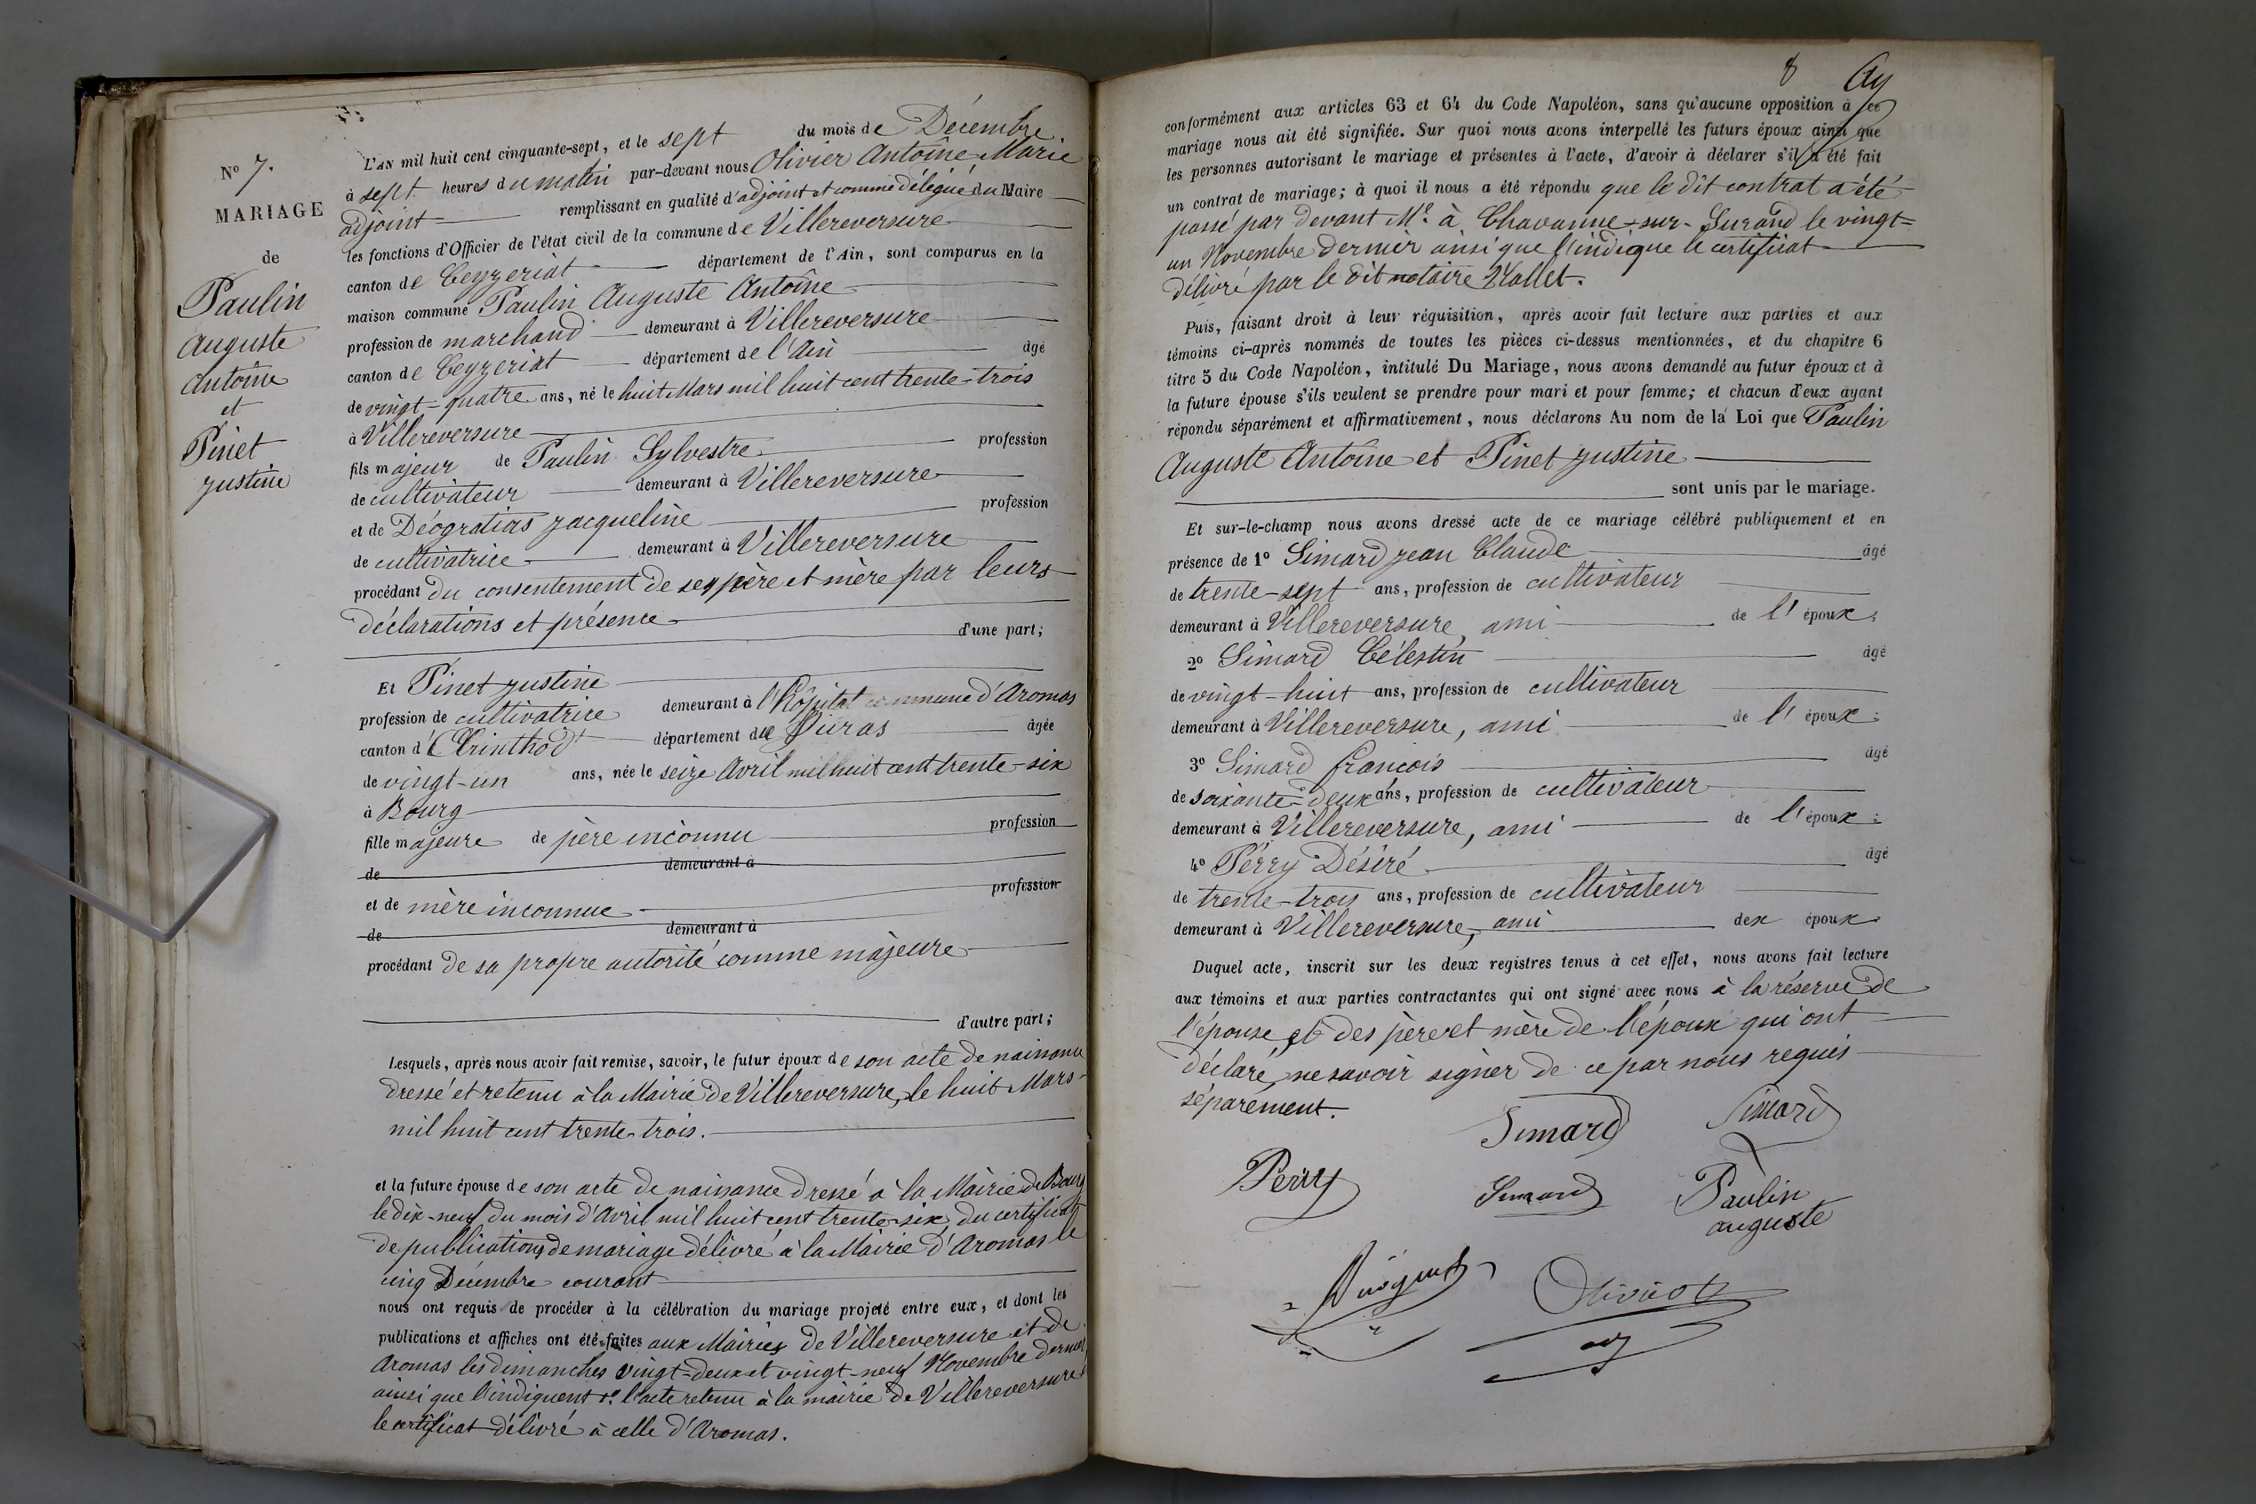 N° 7.
MARIAGE
de
Paulin
Auguste
Antoine
et
Pinet
Justine
L'AN mil huit cent cinquante-sept, et le sept du mois de Décembre
à sept heures du matin par-devant nous Olivier Antoine Marie
adjoint remplissant en qualité d'adjoint et comme délégué du Maire
les fonctions d'Officier de l'état civil de la commune de Villereversure
canton de Ceyzeriat département de l'Ain, sont comparus en la
maison commune Paulin Auguste Antoine
profession de marchand demeurant à Villereversure
canton de Ceyzeriat département de l'Ain âgé
de vingt-quatre ans, né le huit Mars mil huit cent trente-trois
à Villereversure
fils majeur de Paulin Sylvestre profession
de cultivateur demeurant à Villereversure
et de Déogratias Jacqueline profession
de cultivatrice demeurant à Villereversure
procédant du consentement de ses père et mère par leurs
déclarations et présence
d'une part;
Et Pinet Justine
profession de cultivatrice demeurant à l'Hôpital commune d'Aromas
canton d'Arinthod département du Juras âgée
de vingt-un ans, née le seize Avril mil huit cent trente-six
à Bourg
fille majeure de père inconnu profession
de demeurant à
et de mère inconnue profession
de demeurant à
procédant de sa propre autorité comme majeure
d'autre part;
Lesquels, après nous avoir fait remise, savoir, le futur époux de son acte de naissance
dressé et retenu à la Mairie de Villereversure, le huit Mars
mil huit cent trente-trois.
et la future épouse de son acte de naissance dressé à la Mairie de Bourg
le dix-neuf du mois d'Avril mil huit cent trente-six, du certificat
de publications de mariage délivré à la Mairie d'Aromas le
cinq Décembre courant
nous ont requis de procéder à la célébration du mariage projeté entre eux, et dont les
publications et affiches ont été faites aux Mairies de Villereversure et de
Aromas les dimanches vingt-deux et vingt-neuf Novembre dernier
ainsi que l'indiquent l'acte retenu à la mairie de Villereversure
le certificat délivré à celle d'Aromas.
8
conformément aux articles 63 et 64 du Code Napoléon, sans qu'aucune opposition à ce
mariage nous ait été signifiée. Sur quoi nous avons interpellé les futurs époux ainsi que
les personnes autorisant le mariage et présentes à l'acte, d'avoir à déclarer s'il a été fait
un contrat de mariage; à quoi il nous a été répondu que le dit contrat a été
passé par devant Me. à Chavanne-sur-Surand le vingt-
un Novembre dernier ainsi que l'indique le certificat
délivré par le dit notaire
Puis, faisant droit à leur réquisition, après avoir fait lecture aux parties et aux
témoins ci-après nommés de toutes les pièces ci-dessus mentionnées, et du chapitre 6
titre 5 du Code Napoléon, intitulé Du Mariage, nous avons demandé au futur époux et à
la future épouse s'ils veulent se prendre pour mari et pour femme; et chacun d'eux ayant
répondu séparément et affirmativement, nous déclarons Au nom de la Loi que Paulin
Auguste Antoine et Pinet Justine
sont unis par le mariage.
Et sur-le-champ nous avons dressé acte de ce mariage célébré publiquement et en
présence de 1° Simard Jean Claude âgé
de trente-sept ans, profession de cultivateur
demeurant à Villereversure, ami de l'époux;
2° Simard Célestin âgé
de vingt-huit ans, profession de cultivateur
demeurant à Villereversure, ami de l'époux;
3° Simard françois âgé
de soixante-deux ans, profession de cultivateur
demeurant à Villereversure, ami de l'époux;
4° Perry Désiré âgé
de trente-trois ans, profession de cultivateur
demeurant à Villereversure, ami des époux
Duquel acte, inscrit sur les deux registres tenus à cet effet, nous avons fait lecture
aux témoins et aux parties contractantes qui ont signé avec nous à la réserve de
l'épouse et des père et mère de l'époux qui ont
déclaré, ne savoir signer de ce par nous requis
séparément.
Simard Simard
Perry Simard Paulin
auguste
Olivier